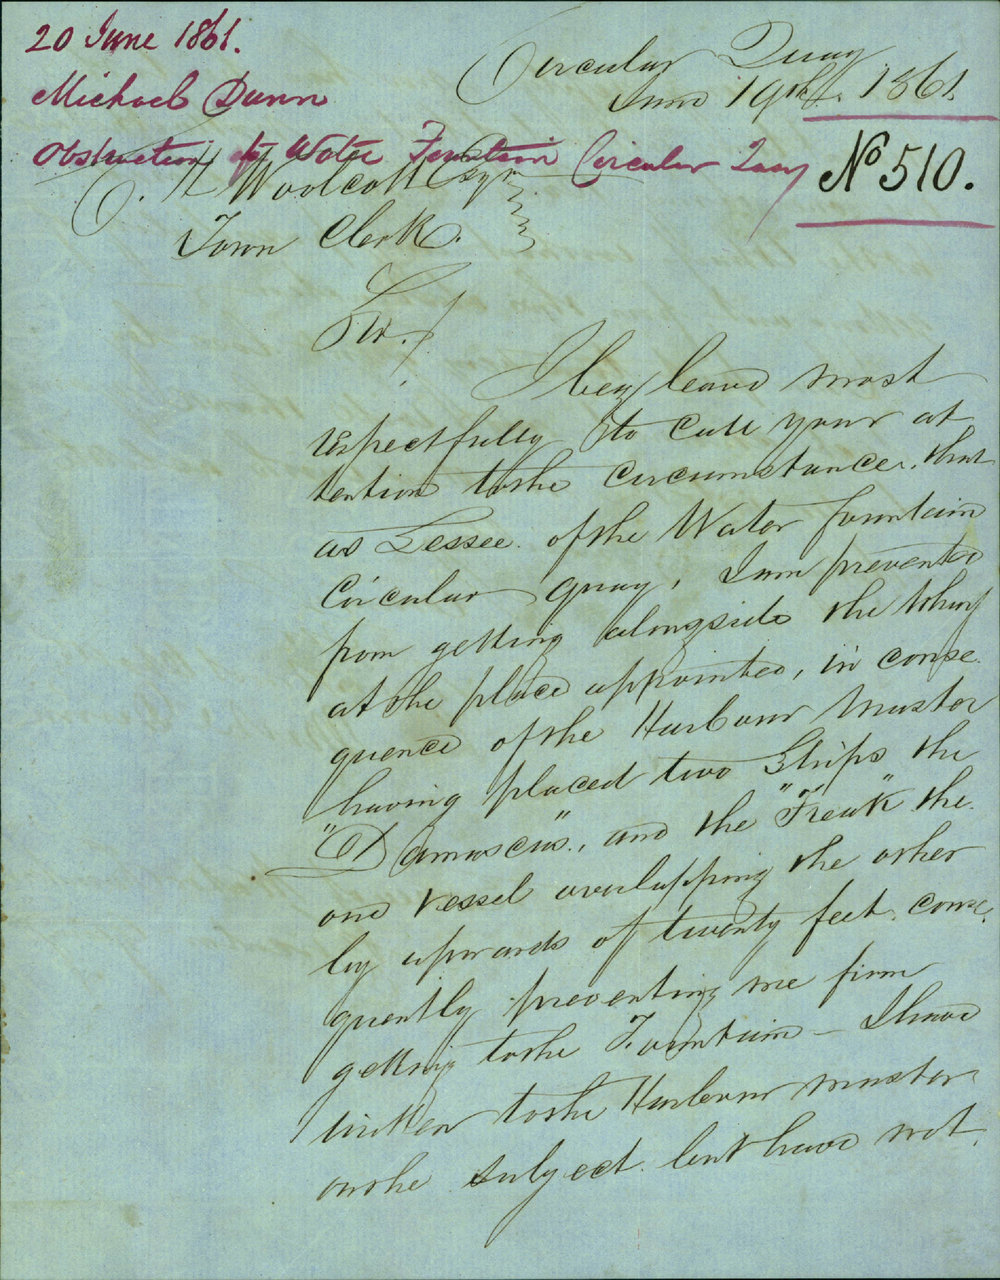 20 June 1861.
Michael Dunn
Obstruction to Water Fountain Circular Quay
Circular Quay
June 19th 1861.
No 510.
C. H. Woolcott Esqr
Town Clerk.
Sir/
I beg leave most
respectfully to call your at
tention to the circumstance, that
as Lessee of the Water fountain
Circular Quay, I am prevented
from getting alongside the wharf
at the place appointed, in conse
quence of the Harbour Master
having placed two Ships the
"Damascus", and the "Freak" the
one vessel overlapping the other
by upwards of twenty feet. conse,
quently preventing me from
getting to the Fountain — I have
writen to the Harbour master
on the subject but have not